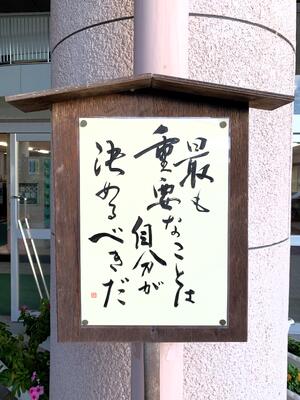 最も
重要なことは
自分が
決めるべきだ